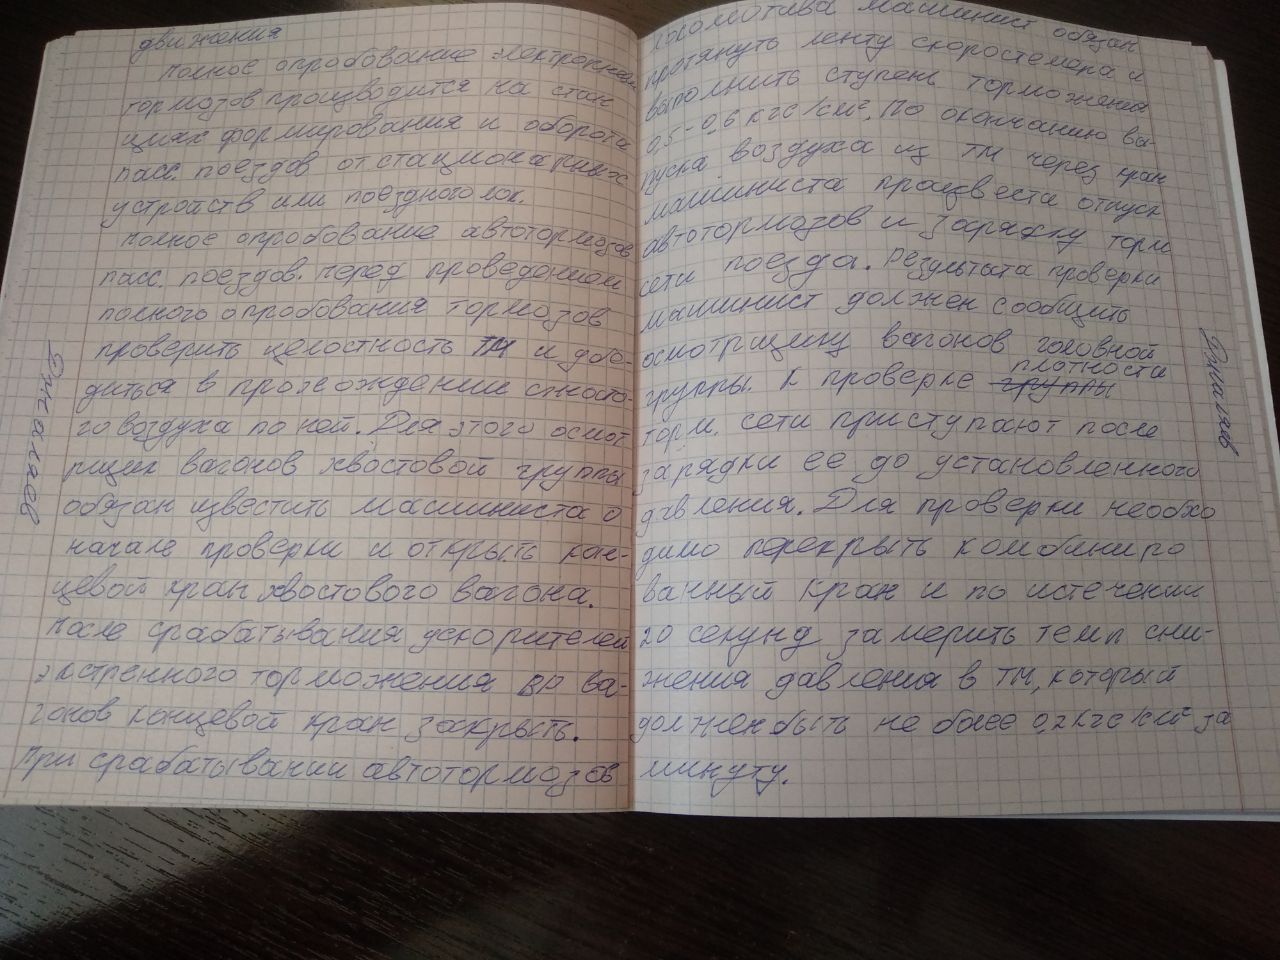 движения
Полное опробование электропнев
тормозов производится на стан
циях формирования и оборота
пасс. поездов от стационарных
устройств или поездного лок.
Полное опробование автотормозов
пасс. поездов. Перед проведением
полного опробования тормозов
проверить целостность ТМ и убе-
диться в прохождении сжато-
го воздуха по ней. Для этого осмот
рщик вагонов хвостовой группы
обязан известить машиниста о
начале проверки и открыть кон-
цевой кран хвостового вагона.
После срабатывания ускорителей
экстренного торможения ВР ва-
гонов концевой кран закрыть.
При срабатывании автотормозов
локомотива машинист обязан
протянуть ленту скоростемера и
выполнить ступень торможения
0,5-0,6 кгс/см². По окончанию вы-
пуска воздуха из ТМ через кран
машиниста произвести отпуск
автотормозов и зарядку торм
сети поезда. Результата проверки
машинист должен сообщить
осмотрщику вагонов головной
группы. К проверке группы плотности
торм. сети приступают после
зарядки ее до установленного
давления. Для проверки необхо
димо перекрыть комбиниро
ванный кран и по истечении
20 секунд замерить темп сни-
жения давления в ТМ, который
должен быть не более 0,2 кгс/см² за
минуту.